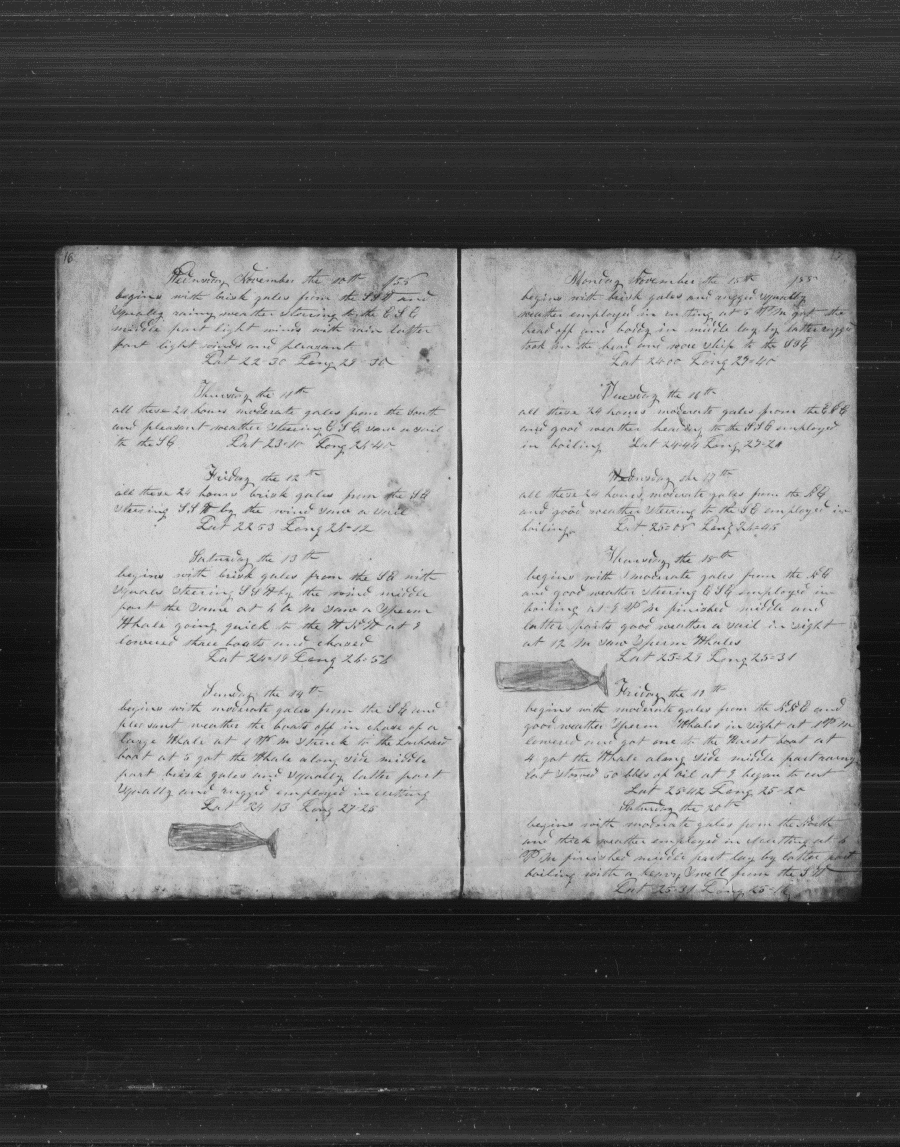 16
Wednesday November the 10th /58
begins with brisk gales from the SSW and
squally rainy weather steering to the ESE
middle part light winds with rain latter
part light winds and pleasant
Lat 22-30 Long 28-30
Thursday the 11th
all these 24 hours moderate gales from the South
and pleasant weather steering ESE saw a sail
to the SE Lat 23-10 Long 26-40
Friday the 12th
all these 24 hours brisk gales from the SE
steering SSW by the wind saw a sail
Lat 22 53 Long 28-12
Saturday the 13th
begins with brisk gales from the SE with
squals steering SSW by the wind middle
part the same at 6 A M saw a Sperm
Whale going quick to the WNW at 8
lowered three boats and chased
Lat 24-19 Long 26-56
Sunday the 14th
begins with moderate gales from the SE and
pleasant weather the boats off in chase of a
large Whale at 1 P M struck to the Larboard
boat at 5 got the Whale along side middle
part brisk gales and squally latter part
squally and rugged employed in cutting
Lat 24 13 Long 27-25
17
Monday November the 15th /58
begins with brisk gales and rugged squally
weather employed in cutting at 5 P M got the
head off and boddy in middle lay by latter rugged
took in the head and wore ship to the SSE
Lat 24-00 Long 27-40
Tuesday the 16th
all these 24 hours moderate gales from the ENE
and good weather heading to the SSE employed
in boiling Lat 24-44 Long 27-20
Wednsday the 17th
all these 24 hours moderate gales from the NE
and good weather steering to the SE employed in
boiling Lat 25-08 Long 26-45
Thursday the 18th
begins with moderate gales from the NE
and good weather steering ESE employed in
boiling at 8 P M finished middle and
latter parts good weather a sail in sight
at 12 M saw Sperm Whales
Lat 25-29 Long 25-31
Friday the 19th
begins with moderate gales from the NNE and
good weather Sperm Whales in sight at 1 P M
lowered and got one to the Waist boat at
4 got the Whale along side middle part rainy
Lat stowed 50 bbls of oil at 9 began to cut
Lat 25 42 Long 25-20
Saturday the 20th
begins with moderate gales from the North
and thick weather employed in cutting at 6
P M finished middle part lay by latter part
boiling with a heavy swell from the SW
Lat 25-31 Long 25-16